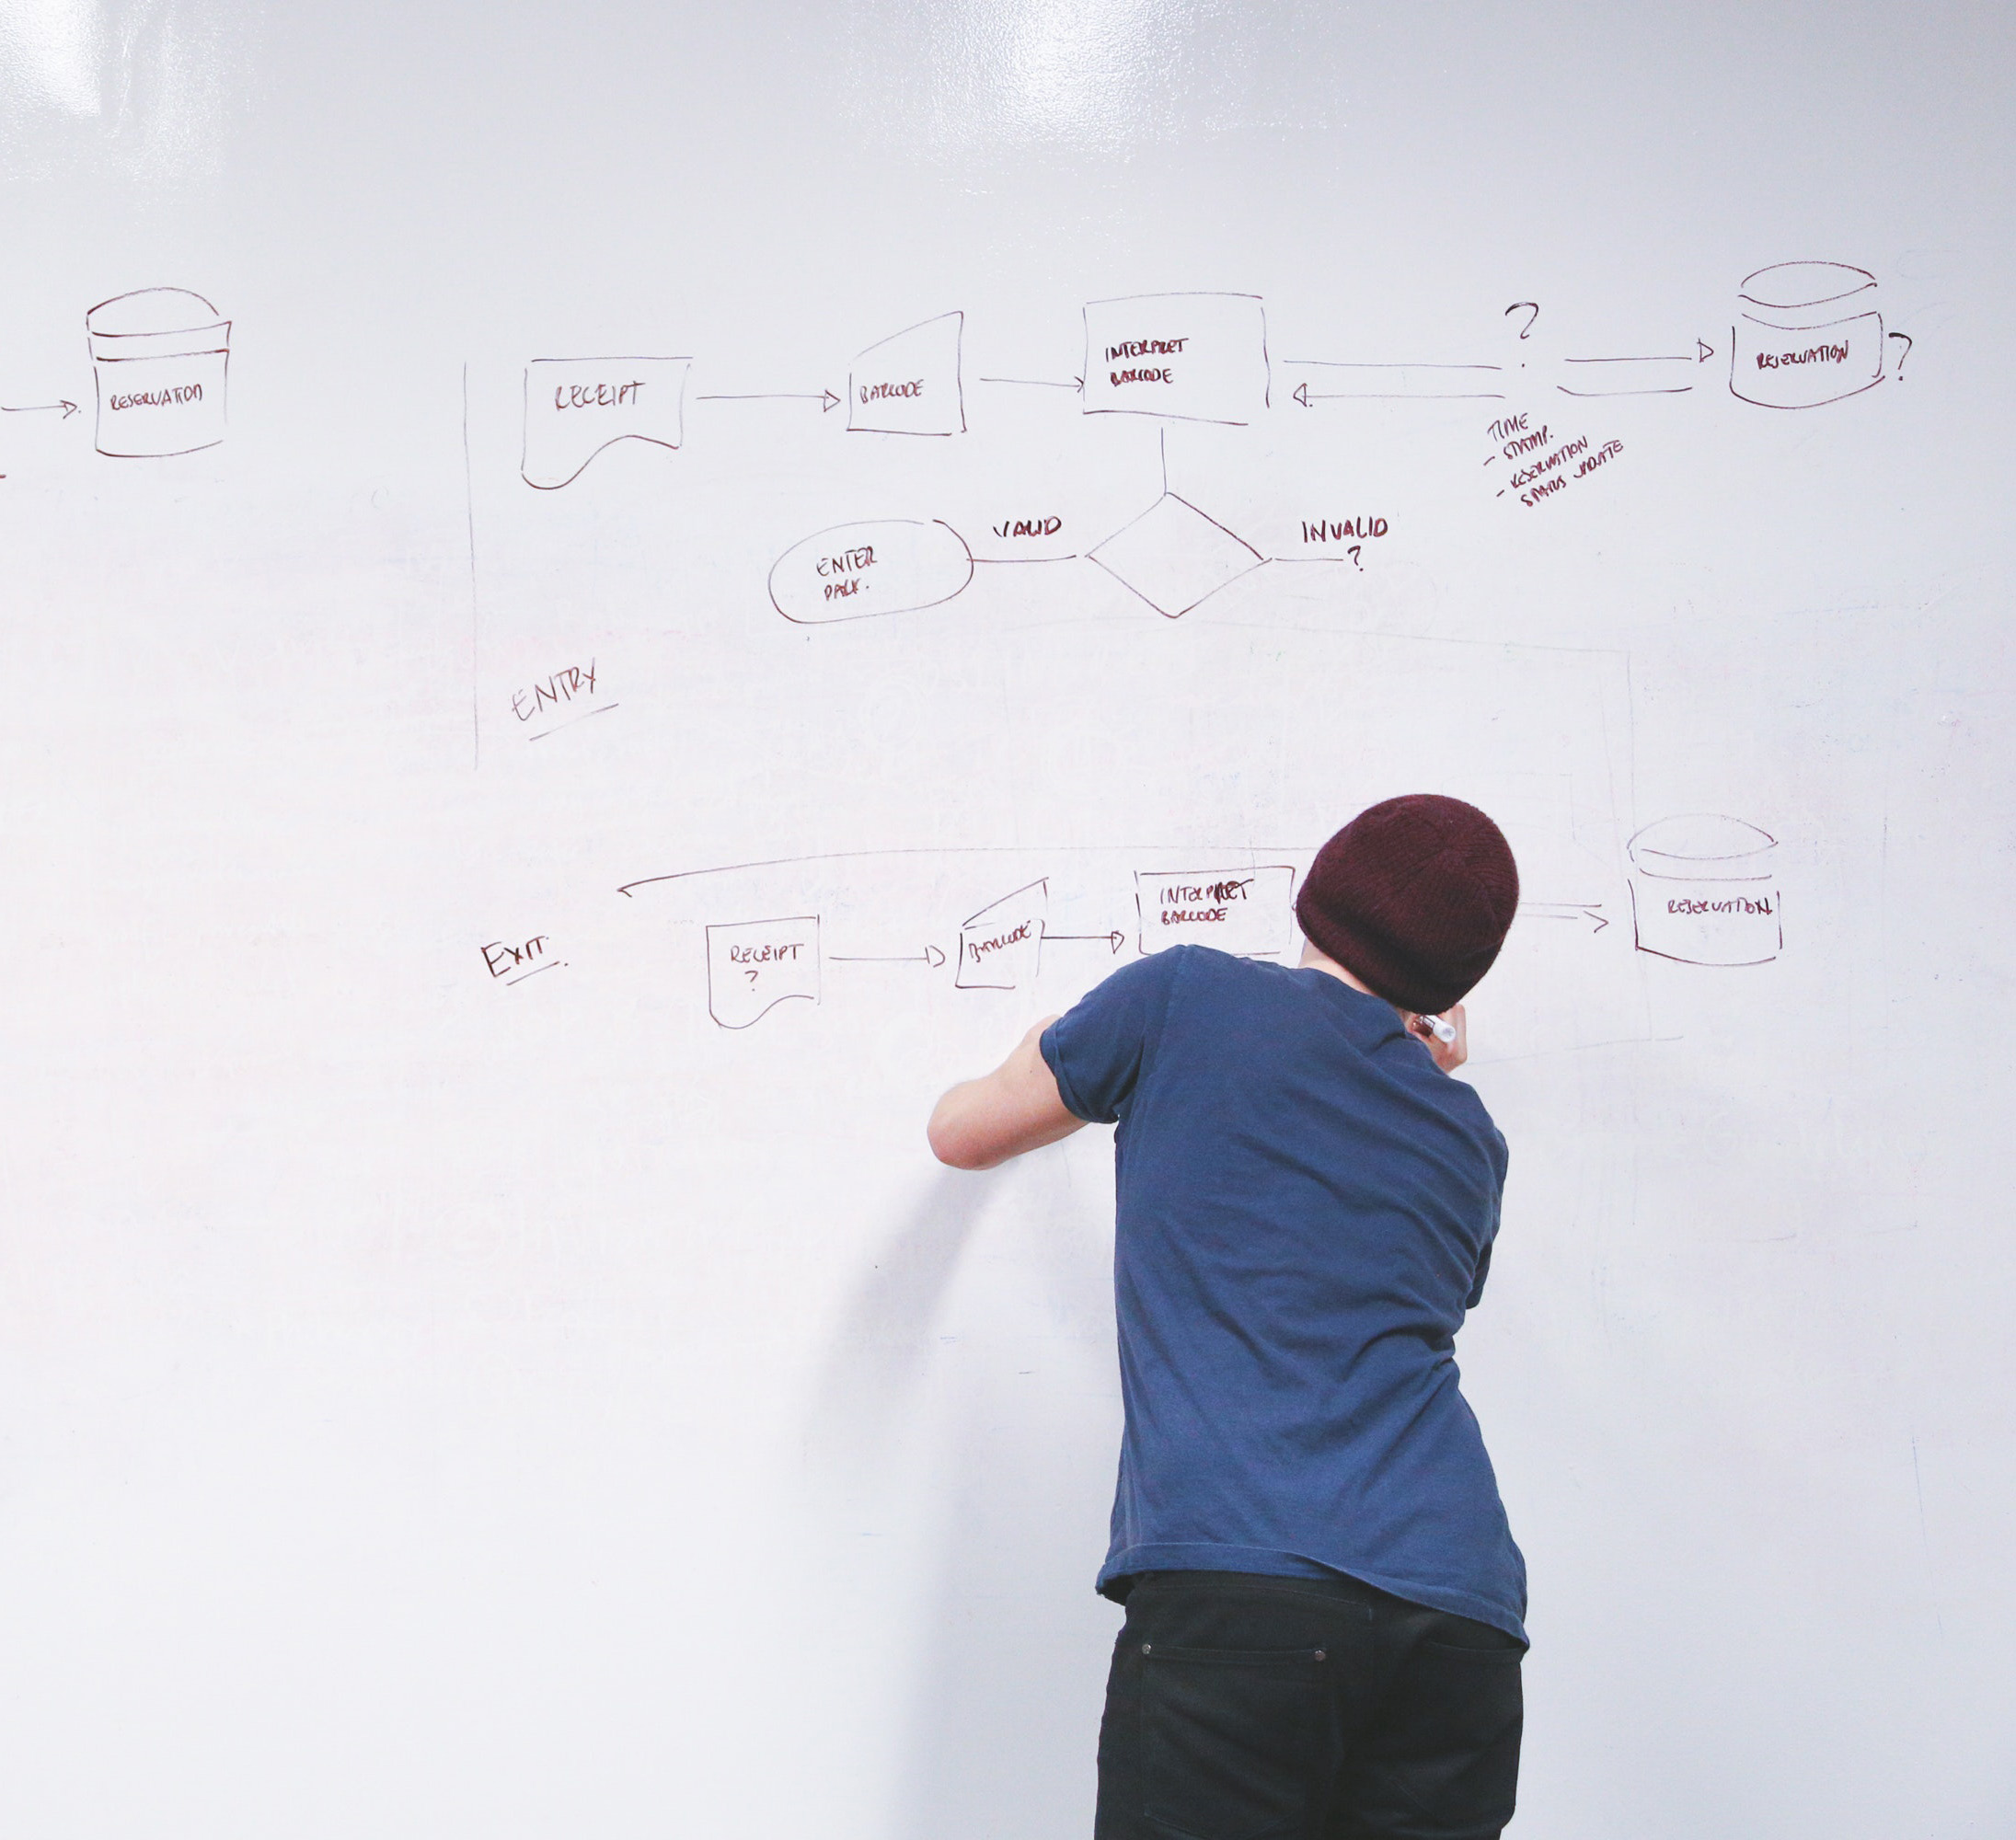 RESERVATION
RECEIPT
BARCODE
INTERPRET
BARCODE
?
RESERVATION
?
TIME
- STAMP.
- RESERVATION
STATUS UPDATE
VALID
INVALID
?
ENTER
PARK.
ENTRY
EXIT.
RECEIPT
?
BARCODE
INTERPRET
BARCODE
RESERVATION